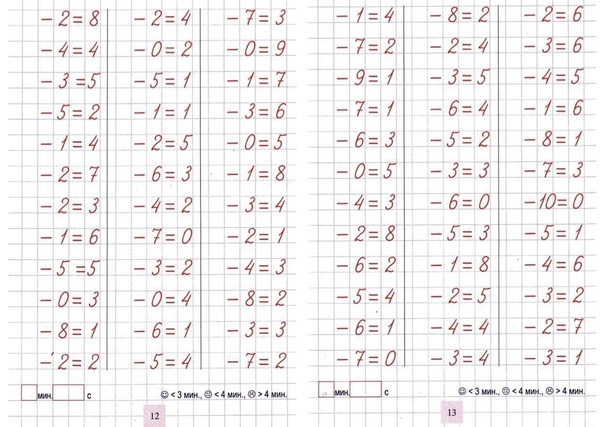 − 2 = 8 − 2 = 4 − 7 = 3
− 4 = 4 − 0 = 2 − 0 = 9
− 3 = 5 − 5 = 1 − 1 = 7
− 5 = 2 − 1 = 1 − 3 = 6
− 1 = 4 − 2 = 5 − 0 = 5
− 2 = 7 − 6 = 3 − 1 = 8
− 2 = 3 − 4 = 2 − 3 = 4
− 1 = 6 − 7 = 0 − 2 = 1
− 5 = 5 − 3 = 2 − 4 = 3
− 0 = 3 − 0 = 4 − 8 = 2
− 8 = 1 − 6 = 1 − 3 = 3
− 2 = 2 − 5 = 4 − 7 = 2
мин. с ☺ < 3 мин., 😐 < 4 мин., ☹ > 4 мин.
12
− 1 = 4 − 8 = 2 − 2 = 6
− 7 = 2 − 2 = 4 − 3 = 6
− 9 = 1 − 3 = 5 − 4 = 5
− 7 = 1 − 6 = 4 − 1 = 6
− 6 = 3 − 5 = 2 − 8 = 1
− 0 = 5 − 3 = 3 − 7 = 3
− 4 = 3 − 6 = 0 − 10 = 0
− 2 = 8 − 5 = 3 − 5 = 1
− 6 = 2 − 1 = 8 − 4 = 6
− 5 = 4 − 2 = 5 − 3 = 2
− 6 = 1 − 4 = 4 − 2 = 7
− 7 = 0 − 3 = 4 − 3 = 1
мин. с ☺ < 3 мин., 😐 < 4 мин., ☹ > 4 мин.
13